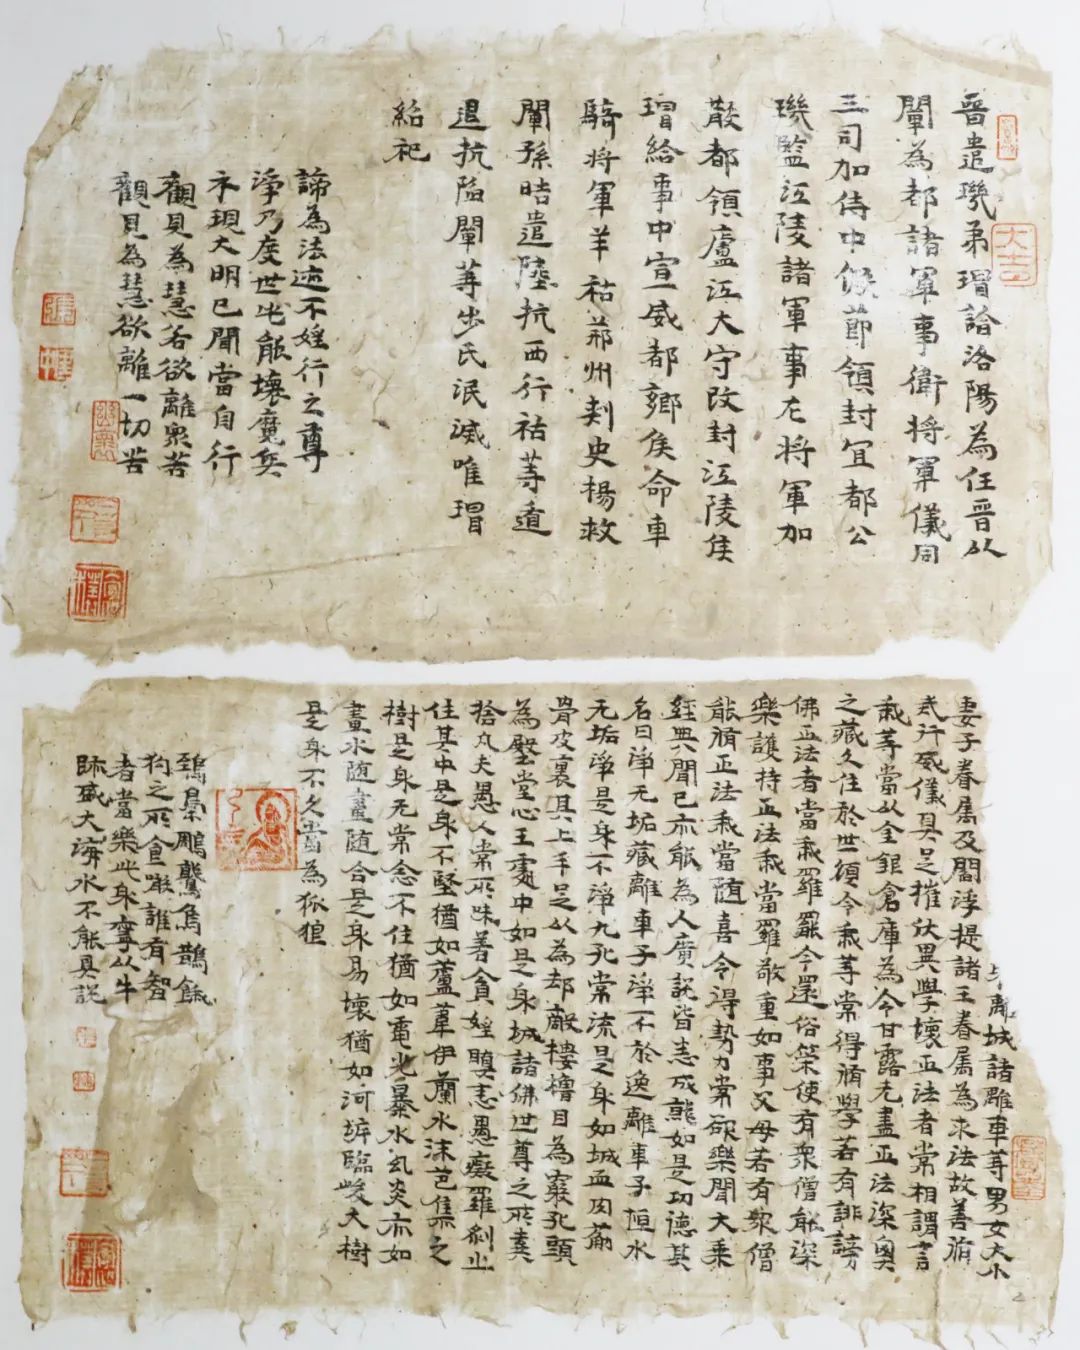 晉遣璣弟璿詣洛陽為任晉以
闡為都諸軍事衛將軍儀同
三司加侍中假節領封宜都公
璣監江陵諸軍事左將軍加
散都領廬江大守改封江陵侯
璿給事中宣威都鄉侯命車
騎將軍羊祜荊州刺史楊救
闡孫晧遣陸抗西行祜等遁
退抗陷闡等步氏泯滅唯璿
紹祀
諦為法迹不婬行之尊
淨乃度世此能壞魔矣
不現大明已聞當自行
觀見為慧若欲離眾苦
觀見為慧欲離一切苦
大吉
離城諸離車等男女大小
妻子眷属及閻浮提諸王眷属為求法故善脩
戒行威儀具足摧伏異學壞正法者常相謂言
我等當以金銀倉庫為令甘露无盡正法深奧
之藏久住於世願令我等常得脩學若有誹謗
佛正法者當我羅罷令還俗策使有眾僧能深
樂護持正法我當羅敬重如事父母若有眾僧
能脩正法我當随喜令得勢力常欲樂聞大乘
經典聞已亦能為人廣說皆悉成熊如是功德其
名曰淨无垢藏離車子淨不於逸離車子恒水
无垢淨是身不淨九孔常流是身如城血肉荕
骨皮裹其上手足以為却敵樓櫓目為竅孔頭
為殿堂心王處中如是身城諸佛世尊之所棄
捨凡夫愚人常所味著貪婬瞋恚愚癡羅刹止
住其中是身不堅猶如蘆葦伊蘭水沫芭蕉之
樹是身无常念不住猶如電光暴水幻炎亦如
畫水随畫随合是身易壞猶如河岸臨峻大樹
是身不久當為狐狼
鵄梟鵰鷲烏鵲餓
狗之所食噉誰有智
者當樂此身寧以牛
跡盛大海水不能具説